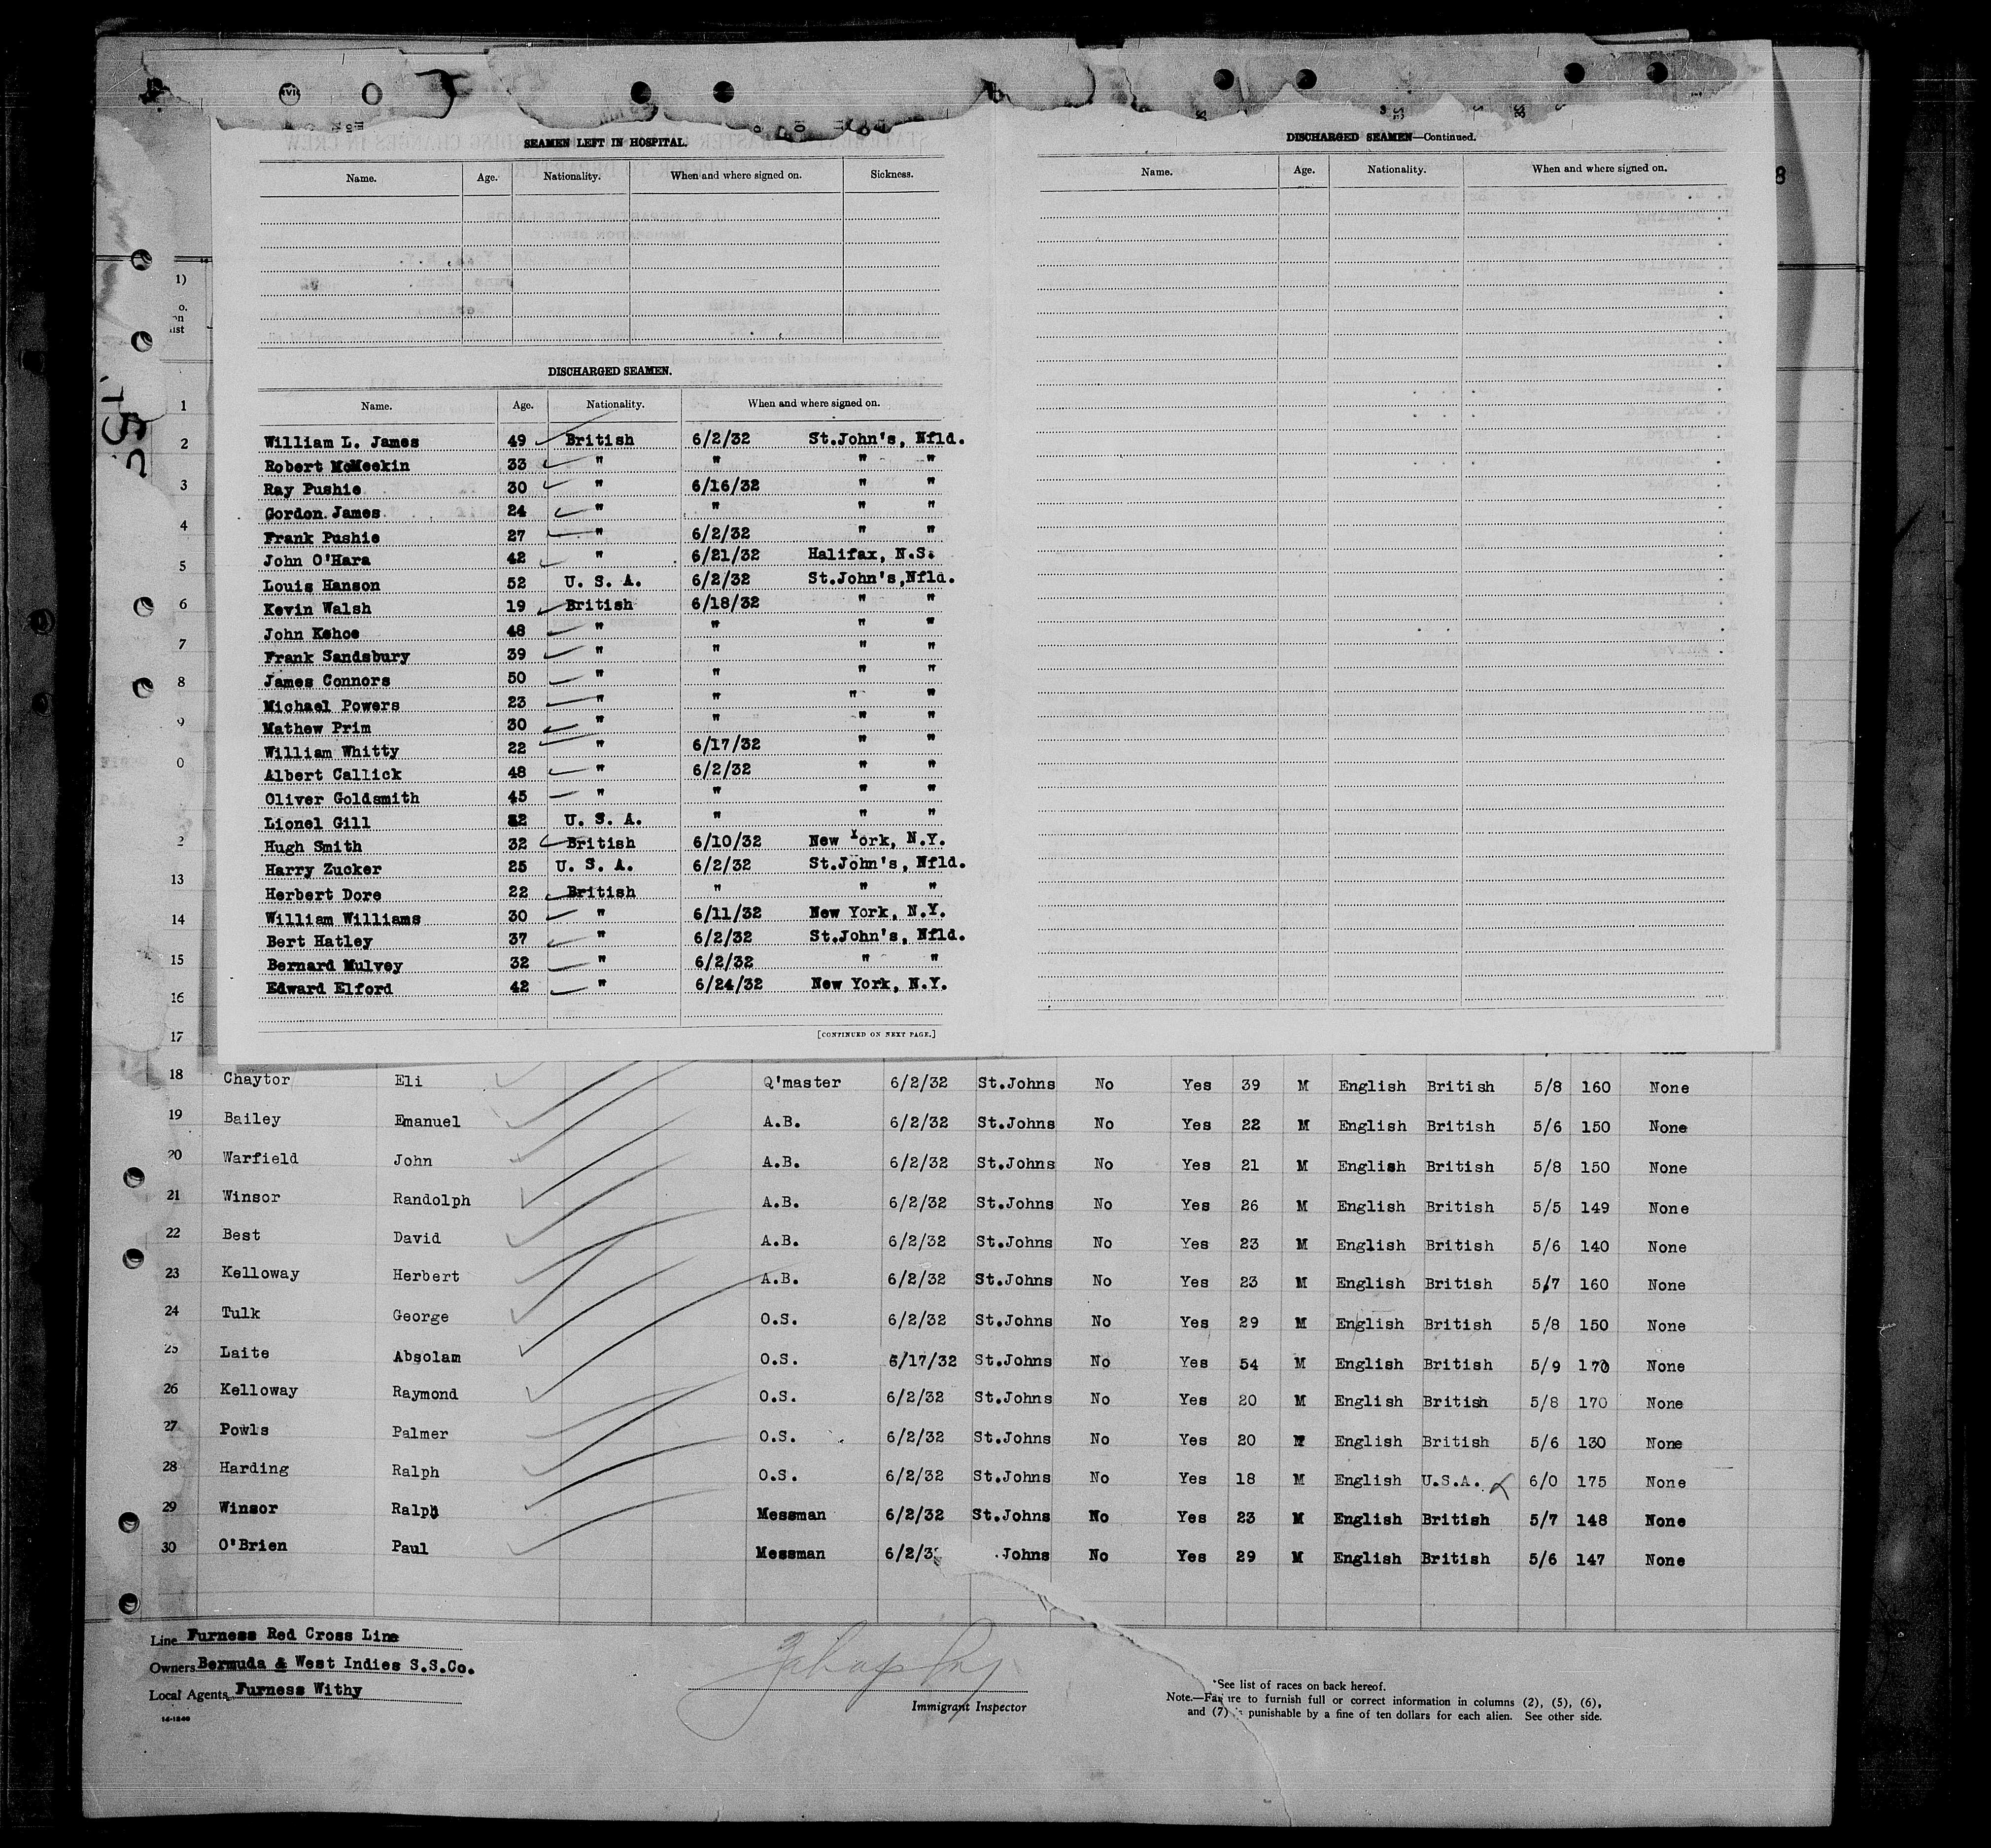 SEAMEN LEFT IN HOSPITAL.
Name. Age. Nationality. When and where signed on. Sickness.
DISCHARGED SEAMEN.
Name. Age. Nationality. When and where signed on.
William L. James 49 British 6/2/32 St.John's, Nfld.
Robert McMeekin 33 " " " "
Ray Pushie 30 " 6/16/32 " "
Gordon James 24 " " " "
Frank Pushie 27 " 6/2/32 " "
John O'Hara 42 " 6/21/32 Halifax, N.S.
Louis Hanson 52 U. S. A. 6/2/32 St.John's,Nfld.
Kevin Walsh 19 British 6/18/32 " "
John Kehoe 48 " " " "
Frank Sandsbury 39 " " " "
James Connors 50 " " " "
Michael Powers 23 " " " "
Mathew Prim 30 " " " "
William Whitty 22 " 6/17/32 " "
Albert Callick 48 " 6/2/32 " "
Oliver Goldsmith 45 " " " "
Lionel Gill U. S. A. " " "
Hugh Smith 32 British 6/10/32 New York, N.Y.
Harry Zucker 25 U. S. A. 6/2/32 St.John's, Nfld.
Herbert Dore 22 British " " "
William Williams 30 " 6/11/32 New York, N.Y.
Bert Hatley 37 " 6/2/32 St.John's, Nfld.
Bernard Mulvey 32 " 6/2/32 " "
Edward Elford 42 " 6/24/32 New York, N.Y.
[CONTINUED ON NEXT PAGE.]
DISCHARGED SEAMEN—Continued.
Name. Age. Nationality. When and where signed on.
8
1)
o.
on
list
1
2
3
4
5
6
7
8
9
0
2
13
14
15
16
17
18 Chaytor Eli Q'master 6/2/32 St.Johns No Yes 39 M English British 5/8 160 None
19 Bailey Emanuel A.B. 6/2/32 St.Johns No Yes 22 M English British 5/6 150 None
20 Warfield John A.B. 6/2/32 St.Johns No Yes 21 M English British 5/8 150 None
21 Winsor Randolph A.B. 6/2/32 St.Johns No Yes 26 M English British 5/5 149 None
22 Best David A.B. 6/2/32 St.Johns No Yes 23 M English British 5/6 140 None
23 Kelloway Herbert A.B. 6/2/32 St.Johns No Yes 23 M English British 5/7 160 None
24 Tulk George O.S. 6/2/32 St.Johns No Yes 29 M English British 5/8 150 None
25 Laite Absolam O.S. 6/17/32 St.Johns No Yes 54 M English British 5/9 170 None
26 Kelloway Raymond O.S. 6/2/32 St.Johns No Yes 20 M English British 5/8 170 None
27 Powls Palmer O.S. 6/2/32 St.Johns No Yes 20 M English British 5/6 130 None
28 Harding Ralph O.S. 6/2/32 St.Johns No Yes 18 M English U.S.A. 6/0 175 None
29 Winsor Ralph Messman 6/2/32 St.Johns No Yes 23 M English British 5/7 148 None
30 O'Brien Paul Messman 6/2/3 .Johns No Yes 29 M English British 5/6 147 None
Line Furness Red Cross Line
Owners Bermuda & West Indies S.S.Co.
Local Agents Furness Withy
14-1240
Immigrant Inspector
*See list of races on back hereof.
Note.—Failure to furnish full or correct information in columns (2), (5), (6),
and (7) is punishable by a fine of ten dollars for each alien. See other side.